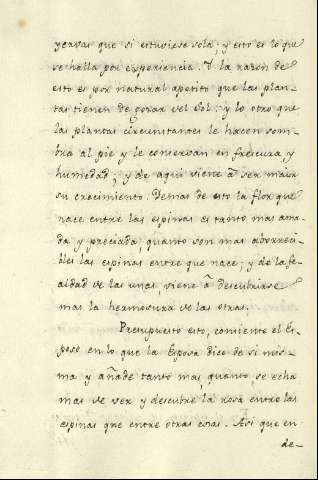 yervas que si estuviese sola; y esto es lo que
se halla por experiencia. Y la razon de
esto es por natural apetito que las plan-
tas tienen de gozar del Sol; y lo otro que
las plantas circunstantes le hacen som-
bra al pie y le conservan en frescura, y
humedad; y de aqui viene à ser maior
su crecimiento. Demas de esto la flor que
nace entre las espinas es tanto mas ama-
da y preciada quanto son mas aborreci-
bles las espinas entre que nace; y de la fe-
aldad de las unas, viene à descubrirse
mas la hermosura de las otras.
Presupuesto esto, comiente el Es-
poso en lo que la Esposa dice de si mis-
ma y añade tanto mas, quanto se echa
mas de ver y descubre la rosa entre las
espinas que entre otras cosas. Asi que en
de-